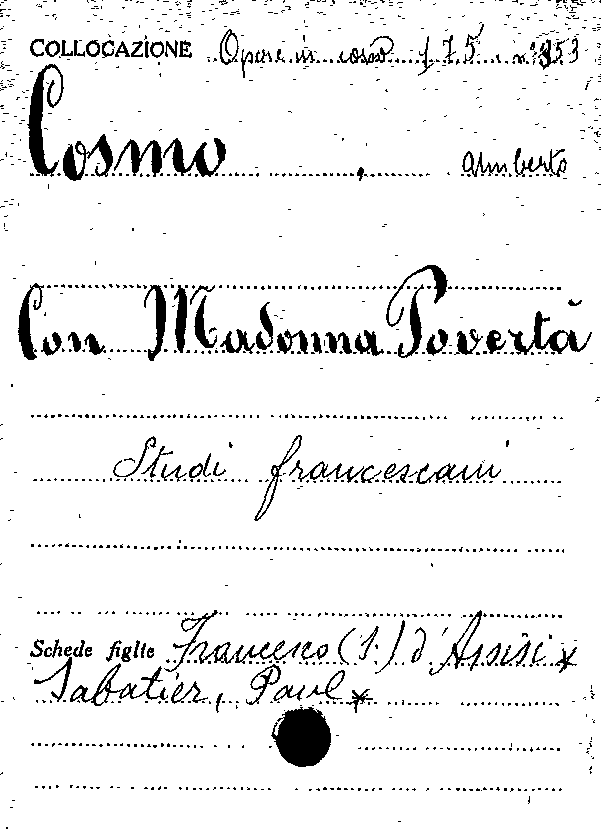 COLLOCAZIONE Opere in corso f 75 n° 353
Cosmo , Umberto
Con Madonna Povertà
Studi francescani
Schede figlie Francesco (S.) d'Assisi *
Sabatier, Paul *